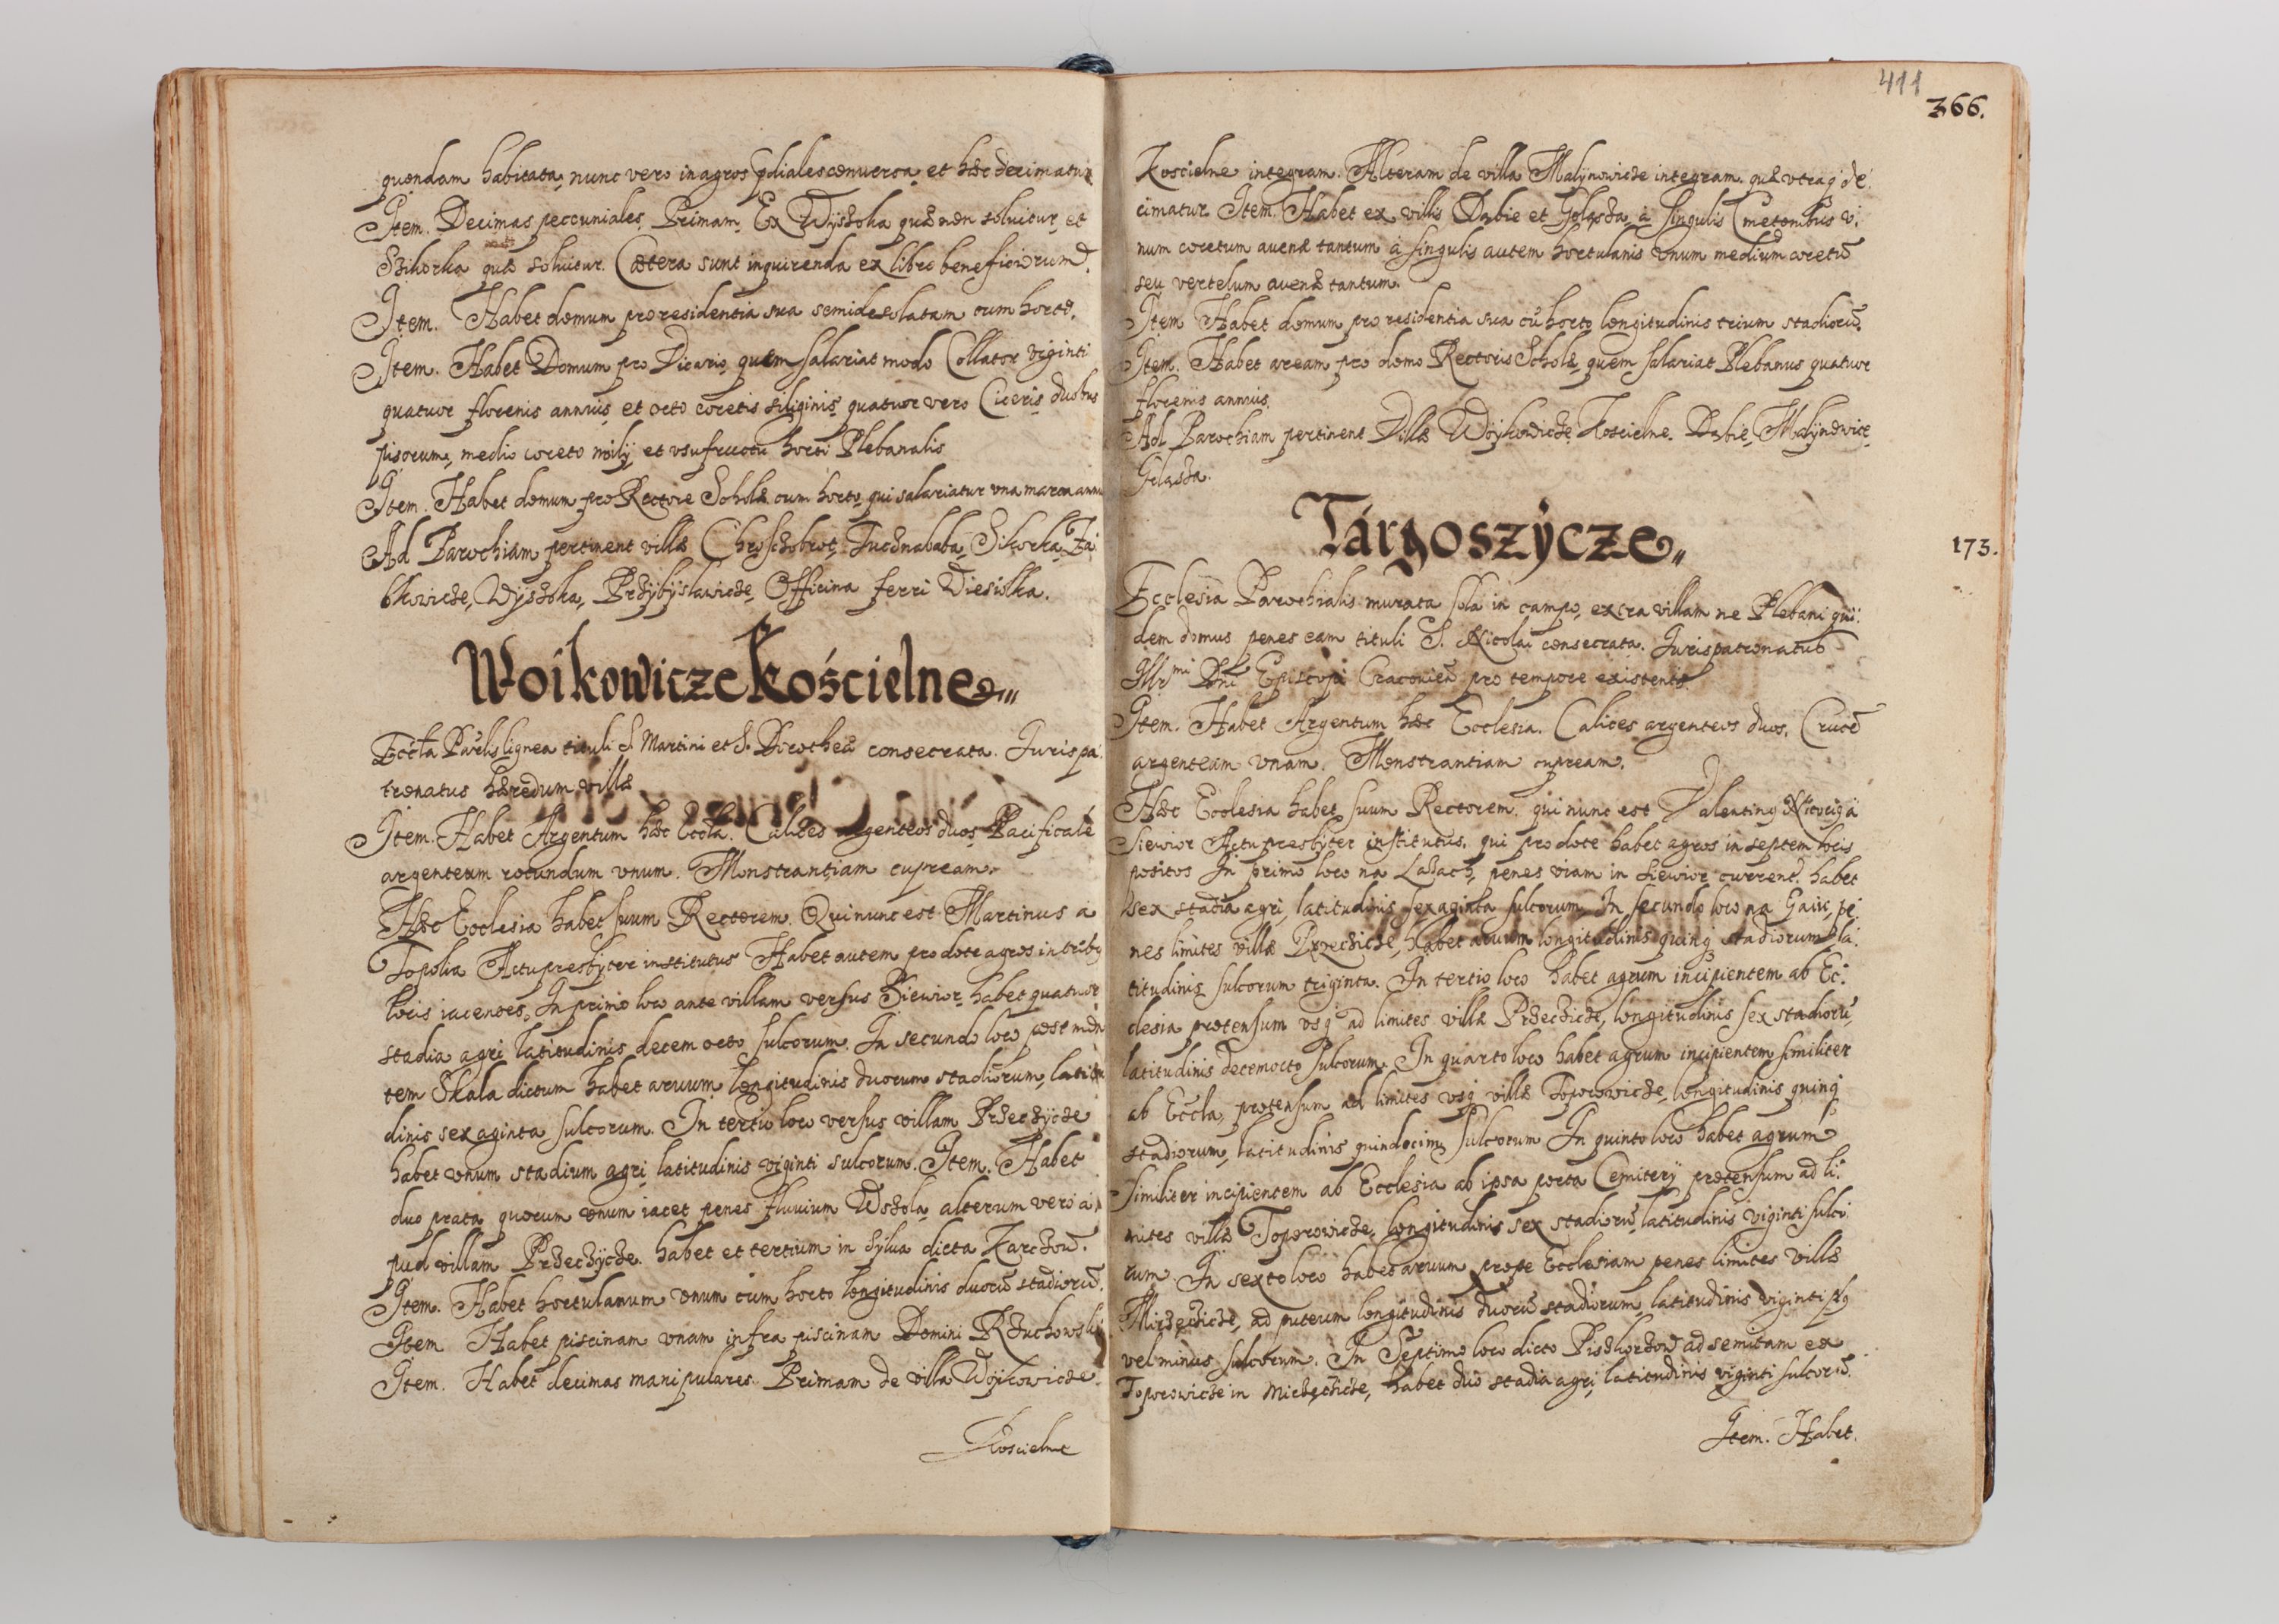 quondam habitata, nunc vero in agros pdiales conuersa, et hæc decimatur
Item. Decimas peccuniales. Primam. Ex Wyszoka quæ non soluitur, et
Szikorka quæ soluitur. Cætera sunt inquirenda ex libro beneficiorum.
Item. Habet domum pro residentia sua semidesolatam cum horto.
Item. Habet Domum pro Vicario, quem salariat modo Collator viginti
quatuor florenis annuis, et octo coretis siliginis, quatuor vero Ciceris, duobus
pisorum, medio coreto milij et vsufructu horti Plebanalis
Item. Habet domum pro Rectore Scholæ cum horto, qui salariatur vna marca annu
Ad Parochiam pertinent villæ Chroschobrot, Tucznababa, Sikorka, Za:
bkowicze, Wyszoka, Przybyslawicze, Officina ferri Wiesiolka.
Woikowicze Kościelne
Eccla Parlis lignea tituli S. Martini et S. Dorotheæ consecrata. Juris pa:
tronatus hæredum villæ
Item. Habet Argentum hæc Eccla. Calices argenteos duos, Pacificale
argenteum rotundum vnum. Monstrantiam cupream.
Hæc Ecclesia habet suum Rectorem. Qui nunc est Martinus a
Topolia Actu presbyter institutus Habet autem pro dote agros in tribq
locis iacentes, In primo loco ante villam versus Siewior, habet quatuor
stadia agri, latitudinis decem octo sulcorum. In secundo loco post mon
tem Skala dictum habet aruum longitudinis duorum stadiorum, latitu
dinis sexaginta sulcorum. In tertio loco versus villam Przeczycze
habet vnum stadium agri, latitudinis viginti sulcorum. Item. Habet
duo prata, quorum vnum iacet penes fluuium Wszola, alterum vero a
pud villam Przeczycze. habet et tertium in sylua dicta Karczow.
Item. Habet hortulanum vnum cum horto longitudinis duoru stadioru.
Item Habet piscinam vnam infra piscinam Domini Rzuchowski
Item. Habet decimas manipulares. Primam de villa Woykowicze
Koscielne
411
366.
Koscielne integram. Alteram de villa Malynowicze integram. quæ vtraq de:
cimatur. Item. Habet ex villis Dąbie et Goląsza, à singulis Cmetonibus v:
num coretum auenæ tantum à singulis autem hortulanis vnum medium coretu
seu vertelum auenæ tantum.
Item Habet domum pro residentia sua cu horto longitudinis trium stadioru.
Item. Habet aream pro domo Rectoris Scholæ, quem salariat Plebanus quatuor
florenis annuis.
Ad Parochiam pertinent Villæ Woykowicze Koscielne. Dąbie, Malynowice,
Golasza.
Targoszycze
173.
Ecclesia Parochialis murata sola in campo, extra villam ne Plebani qui:
dem domus penes eam tituli S. Nicolai consecrata. Jurispatronatus
Illrmi Dni Episcopi Cracouien pro tempore existentis.
Item. Habet Argentum hæc Ecclesia. Calices argenteos duos, Cruce
argenteam vnam. Monstrantiam cupream.
Hæc Ecclesia habet suum Rectorem. qui nunc est Valentinq à
Siewior Actu presbyter institutus, qui pro dote habet agros in septem locis
positos In primo loco na Lazach, penes viam in Siewior current. habet
sex stadia agri, latitudinis sexaginta sulcorum. In secundo loco na Gaiu, pe:
nes limites villæ Przeczicze, habet aruum longitudinis quinq stadiorum la:
titudinis sulcorum triginta. In tertio loco habet agrum incipientem ab Ec:
clesia protensum vsq ad limites villæ Przeczicze, longitudinis sex stadioru,
latitudinis decemocto sulcorum. In quarto loco habet agrum incipientem similiter
ab Eccla, protensum ad limites vsq villæ Toporowicze, longitudinis quinq
stadiorum, latitudinis quindecim sulcorum In quinto loco habet agrum
similiter incipientem ab Ecclesia ab ipsa porta Cemiterij protensum ad li:
mites villæ Toporowicze, longitudinis sex stadioru, latitudinis viginti sulco
rum. In sexto loco habet aruum prope Ecclesiam penes limites villæ
ad puteum longitudinis duoru stadiorum, latitudinis viginti plq
vel minus sulcorum. In Septimo loco dicto ad semitam ex
Toporowicze in habet duo stadia agri, latitudinis viginti sulcoru.
Item. Habet.